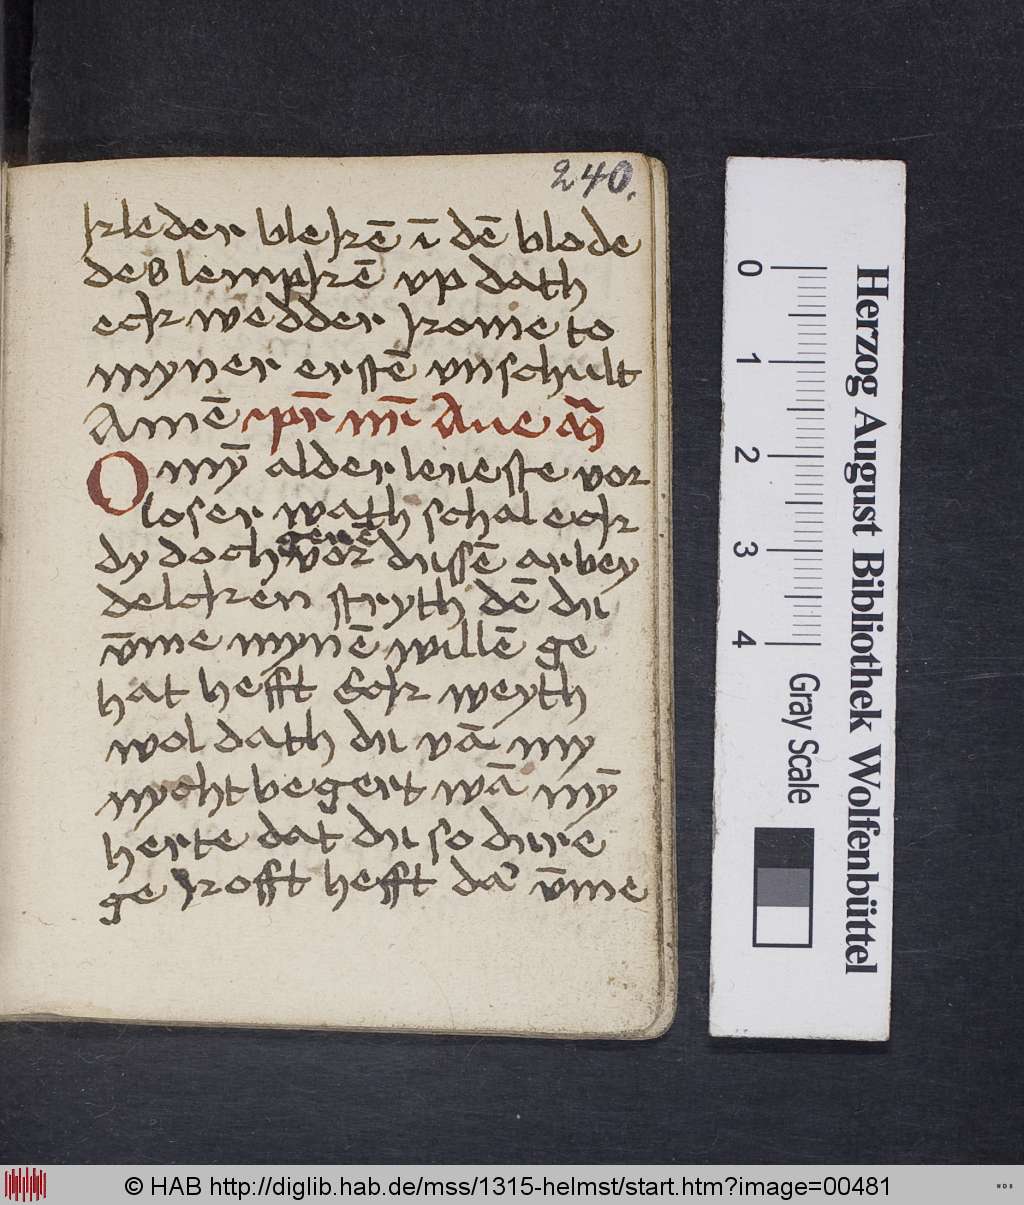 240.
kleder blekē ī dē blode
des lempkē vp dath
eck wedder kome to
myner erstē vnschult
Amē pr̄ nr̄ Aue mā
O mȳ alder leueste vor
loser wath schal eck
geuē
dy doch vor dussē arbey
delcken stryth dē du
v̄me mynē willē ge
hat hefft Eck weyth
wol dath du vā my
nycht begert wā mȳ
herte dat du so dure
ge kofft hefft dar v̄me
Herzog August Bibliothek Wolfenbüttel
0 1 2 3 4
Gray Scale
© HAB http://diglib.hab.de/mss/1315-helmst/start.htm?image=00481